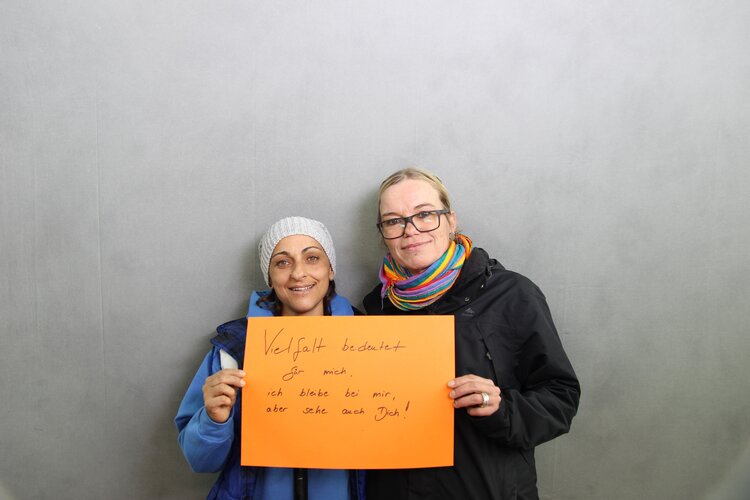 Vielfalt bedeutet
für mich,
ich bleibe bei mir,
aber sehe auch Dich!